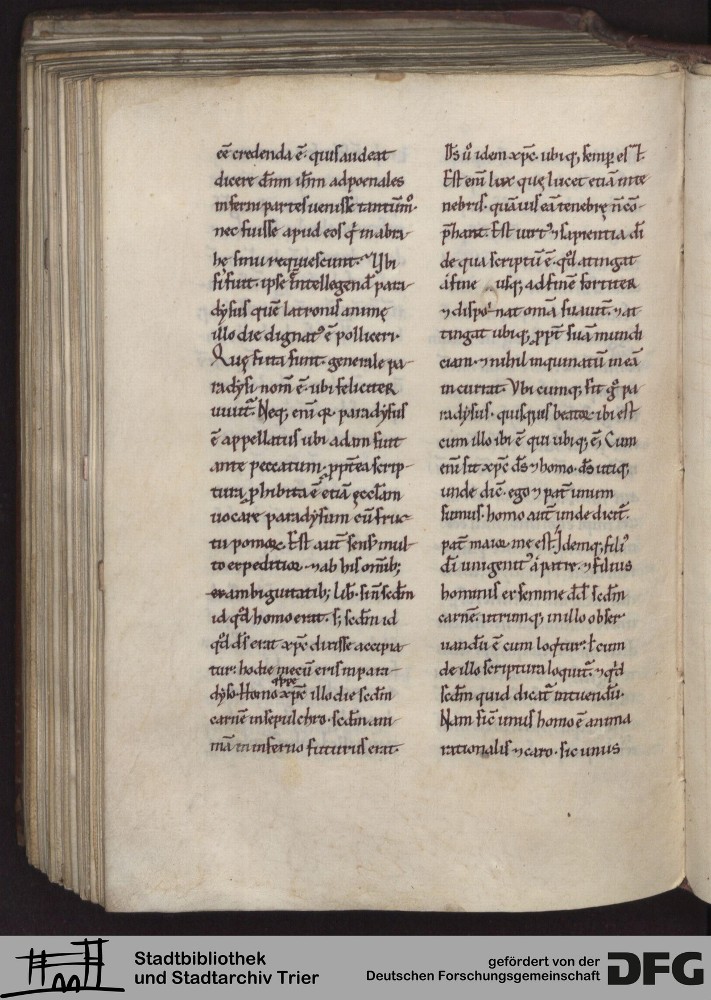 eē credenda ē. quis audeat
dicere dn̄m ih̄m ad poenales
inferni partes uenisse tantūm̊.
nec fuisse apud eos q̇ in abra-
hę sinu requiescunt. Ubi
si fuit. ipse intellegend' para-
dysus quē latronis animę
illo die dignatꝰ ē polliceri.
Quę si ita sunt. generale pa-
radysi nom̄ ē. ubi feliciter
uiuit᷑. Neq; eni qꝛ paradysus
ē appellatus ubi adam fuit
ante peccatum. ppt̄ea scrip-
tura phibita ē etiā ęccl'am
uocare paradysum cū fruc-
tu pomoꝝ. Est aut̄ sensꝰ mul-
to expeditior ⁊ ab his om̄ib;
ambiguitatib; lib. si n̄ scd̄m
id qd̄ homo erat. s; scd̄m id
qd̄ ds̄ erat xp̄c dixisse accipia
tur: hodie mecū eris in para-
dyso. Homo qippe xp̄c illo die scd̄m
carnē in sepulchro. scd̄m ani-
mā in inferno futurus erat.
Ds̄ ů idem xp̄c. ubiq; semp est.
Est eni lux quę lucet etiā in te-
nebris. quāuis eā tenebrę n̄ cō-
p̄hant. Est uirtꝰ ⁊ sapientia dī
de qua scriptū ē. qd̄ atingat
a fine usq; ad finē fortiter
⁊ disponat oma suauit᷑. ⁊ at
tingat ubiq; ppt̄ suā mundi
ciam. ⁊ nihil inquinatū in eā
incurrat. Ubicumq; sit g̊ pa-
radysus. quisquis beatoꝝ ibi est
cum illo ibi ē qui ubiq; ē. Cum
eni sit xp̄c ds̄ ⁊ homo. ds̄ utiq;
unde dic̄. ego ⁊ pat᷑ unum
sumus. homo aut̄ unde dicit.
pat᷑ maior me est. Idemq; filiꝰ
dī unigenitꝰ a patre. ⁊ filius
hominis ex semine dd̄ scd̄m
carnē. utrumq; in illo obser-
uandū ē cum loqtur: ł cum
de illo scriptura loquit᷑. ⁊ qd̄
scd̄m quid dicat᷑ intuendū.
Nam sic̄ unus homo ē anima
rationalis ⁊ caro. sic unus
Stadtbibliothek
und Stadtarchiv Trier
gefördert von der
Deutschen Forschungsgemeinschaft
DFG